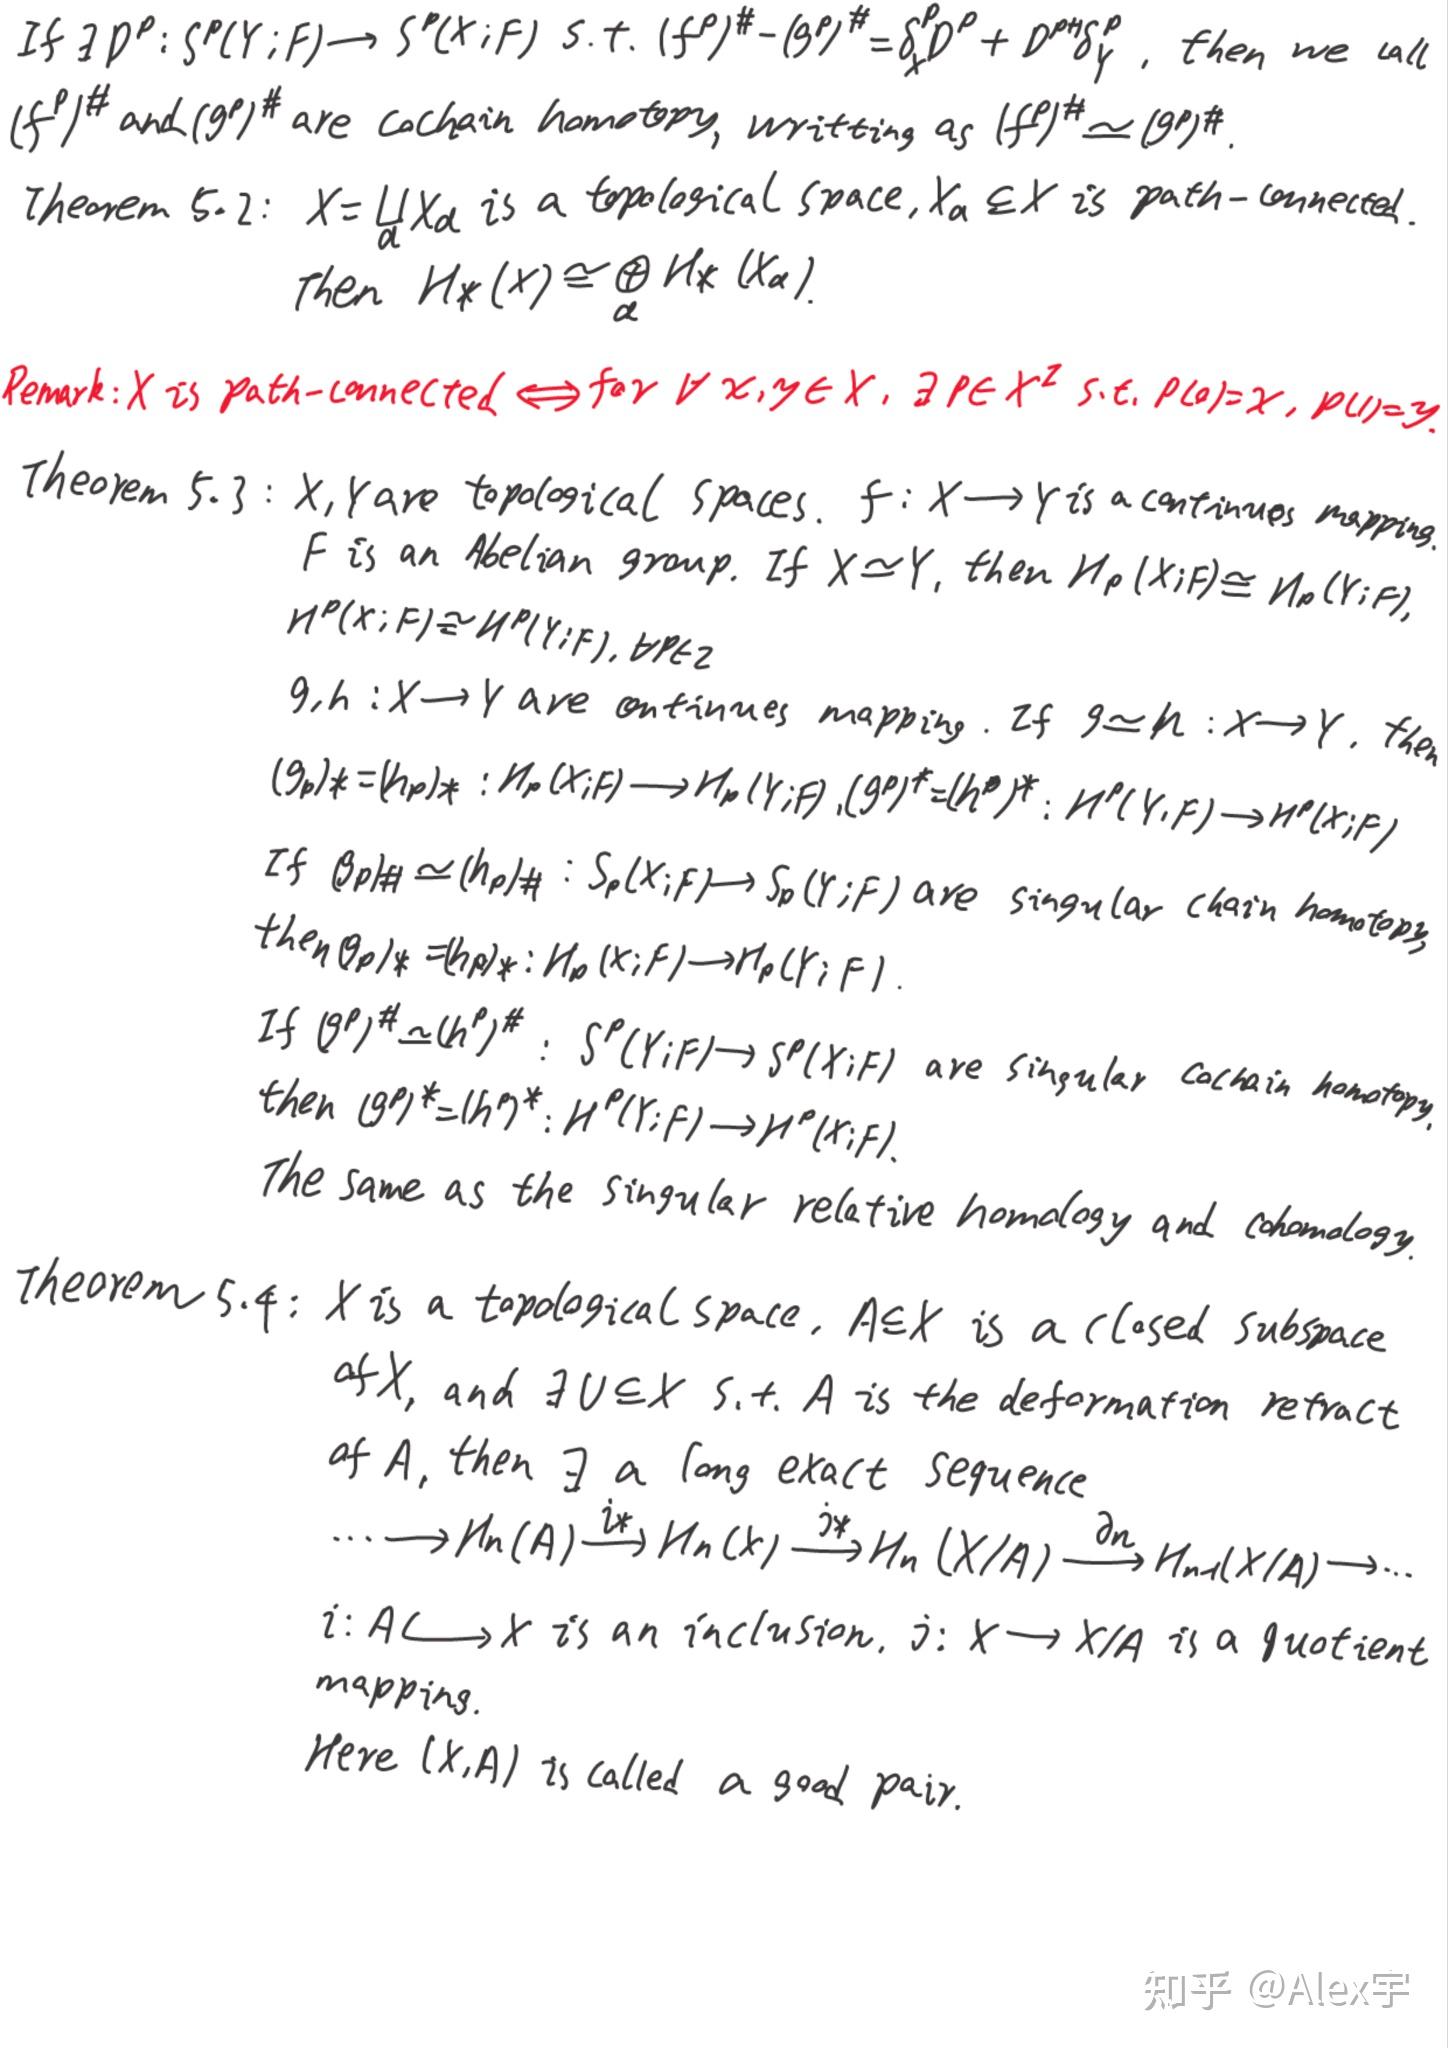 If ∃ D^p : S^p(Y;F) → S^p(X;F) s.t. (f^p)^# - (g^p)^# = δ_X^p D^p + D^{p+1} δ_Y^p, then we call
(f^p)^# and (g^p)^# are cochain homotopy, writting as (f^p)^# ≃ (g^p)^#.
Theorem 5.2: X = ⊔_α X_α is a topological space, X_α ⊆ X is path-connected.
Then H_*(X) ≅ ⊕_α H_*(X_α).
Remark: X is path-connected ⟺ for ∀ x,y ∈ X, ∃ P ∈ X^I s.t. P(0)=x, P(1)=y.
Theorem 5.3: X, Y are topological spaces. f: X → Y is a continues mapping.
F is an Abelian group. If X ≃ Y, then H_p(X;F) ≅ H_p(Y;F),
H^p(X;F) ≅ H^p(Y;F), ∀p∈Z
g,h : X → Y are continues mapping. If g ≃ h : X → Y, then
(g_p)_* = (h_p)_* : H_p(X;F) → H_p(Y;F), (g^p)^* = (h^p)^* : H^p(Y;F) → H^p(X;F)
If (g_p)_# ≃ (h_p)_# : S_p(X;F) → S_p(Y;F) are singular chain homotopy,
then (g_p)_* = (h_p)_* : H_p(X;F) → H_p(Y;F).
If (g^p)^# ≃ (h^p)^# : S^p(Y;F) → S^p(X;F) are singular cochain homotopy,
then (g^p)^* = (h^p)^* : H^p(Y;F) → H^p(X;F).
The same as the singular relative homology and cohomology.
Theorem 5.4: X is a topological space, A ⊆ X is a closed subspace
of X, and ∃ U ⊆ X s.t. A is the deformation retract
of A, then ∃ a long exact sequence
⋯ → H_n(A) →^{i_*} H_n(X) →^{j_*} H_n(X/A) →^{∂_n} H_{n-1}(X/A) → ⋯
i: A ↪ X is an inclusion, j: X → X/A is a quotient
mapping.
Here (X,A) is called a good pair.
知乎 @Alex宇